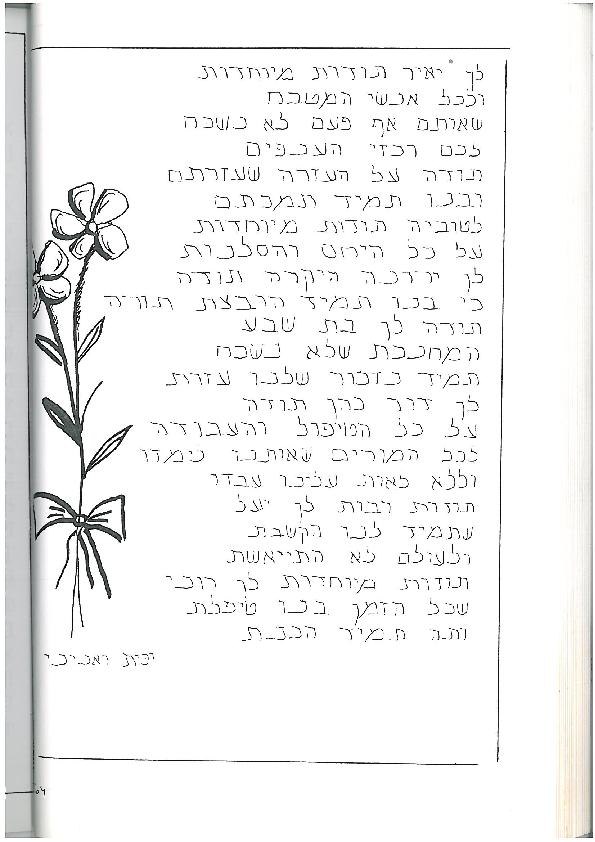 לך יאיר תודות מיוחדות
וככל אנשי המטבח
שאותם אף פעם לא נשכח
לכם רכזי הענפים
תודה על העזרה שעזרתם
ובנו תמיד תמכתם
לטוביה תודות מיוחדות
על כל היחס והסלבנות
לך יהודנה היקרה תודה
כי בנו תמיד הרבצת תורה
תודה לך בת שבע
המחנכת שלא נשכח
תמיד בזכור שלנו עזרת
לך דור כהן תודה
על כל הטיפול והעבודה
לכל המורים שאותנו לימדו
וללא לאות עלינו עבדו
תודות רבות לך יעל
שתמיד לנו הקשבת
ולעולם לא התייאשת
תודות מיוחדות לך רוני
שכל הזמן בנו טיפלת
ותמיד הבנת